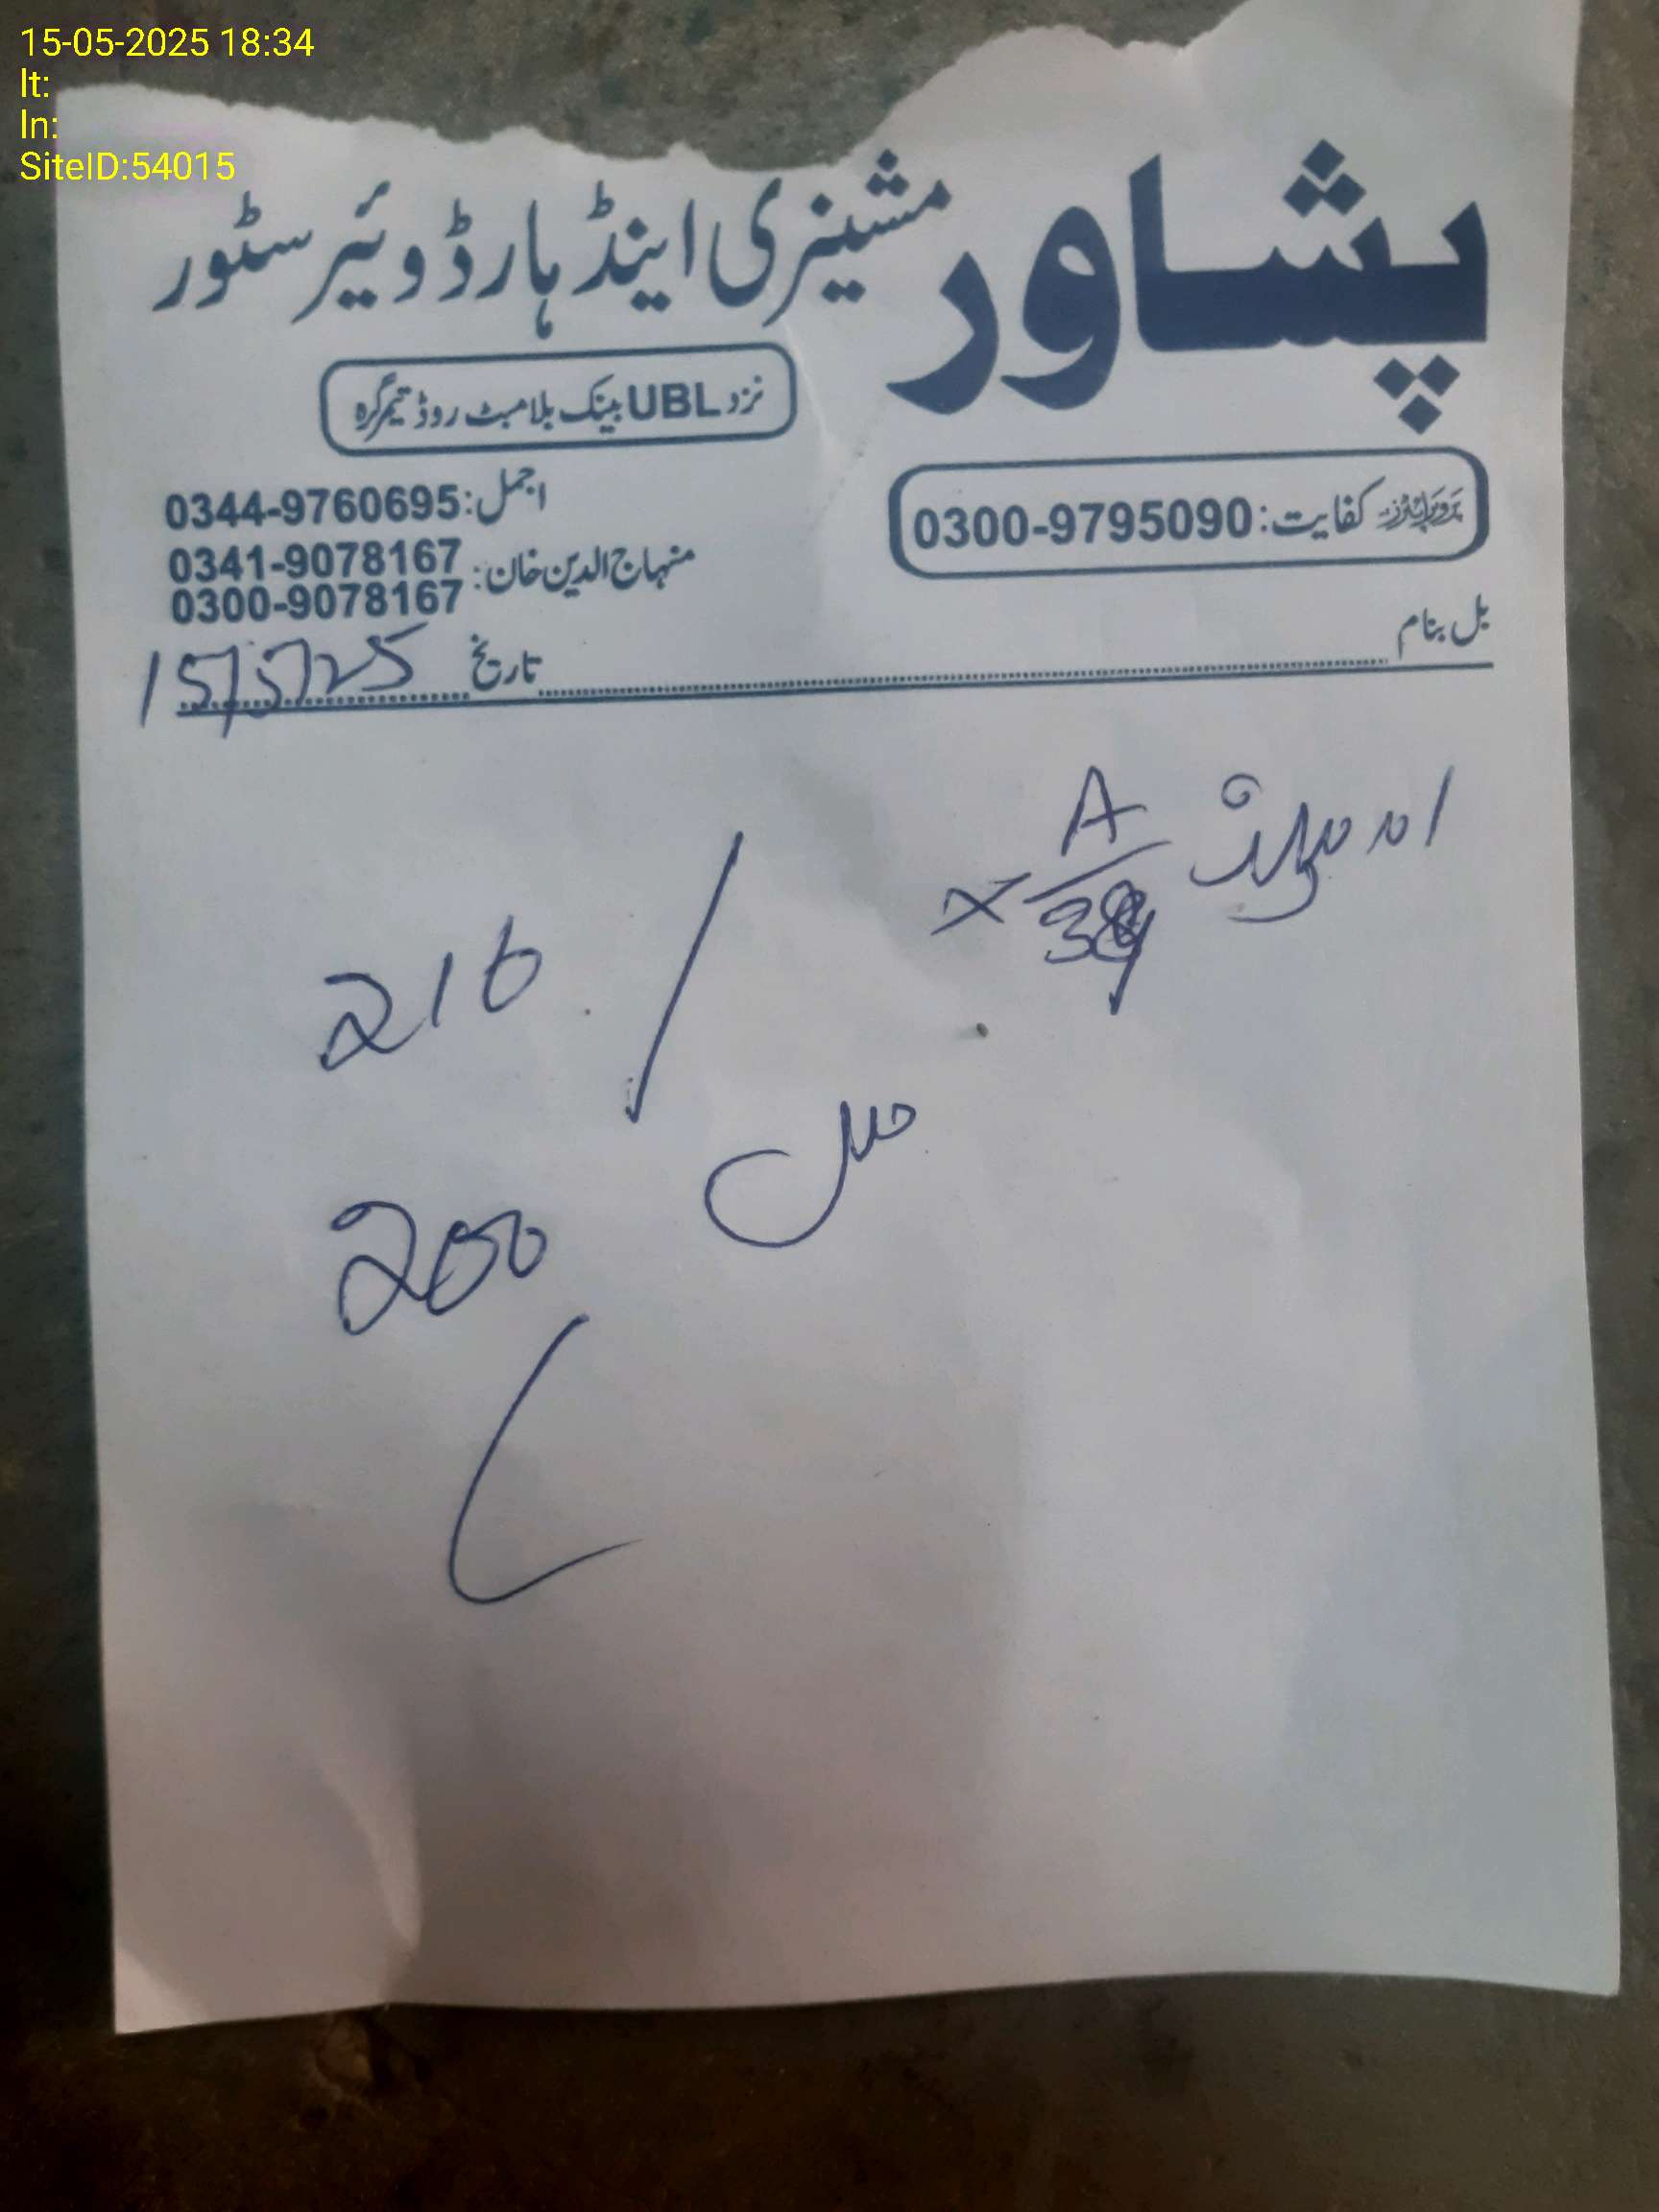 15-05-2025 18:34
lt:
ln:
SiteID:54015
پشاور مشینری اینڈ ہارڈوئیر سٹور
نزد UBL بینک بلامبٹ روڈ تیمرگرہ
پروپرائٹرز کفایت: 0300-9795090
اجمل: 0344-9760695
منہاج الدین خان: 0341-9078167
0300-9078167
بل بنام تاریخ 15/5/25
A
216
200